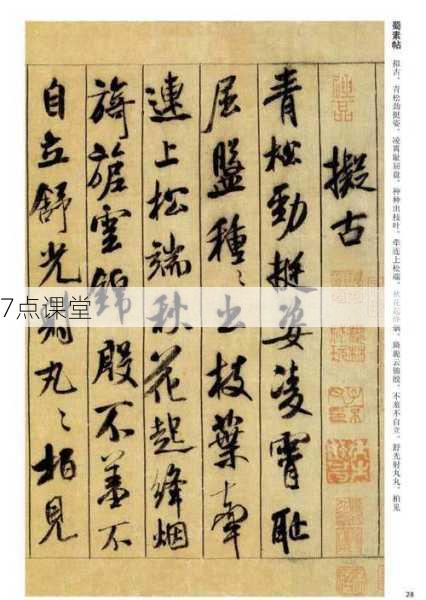 蜀素帖
拟古。青松劲挺姿。凌霄耻屈盘。种种出枝叶。牵连上松端。秋花起绛烟。旖旎云锦殷。不羞不自立。舒光射丸丸。柏见
擬古
青松勁挺姿凌霄恥
屈盤種〻出枝葉牽
連上松端秋花起絳烟
旖旎雲錦殷不羞不
自立舒光射丸〻柏見
7点课堂
28